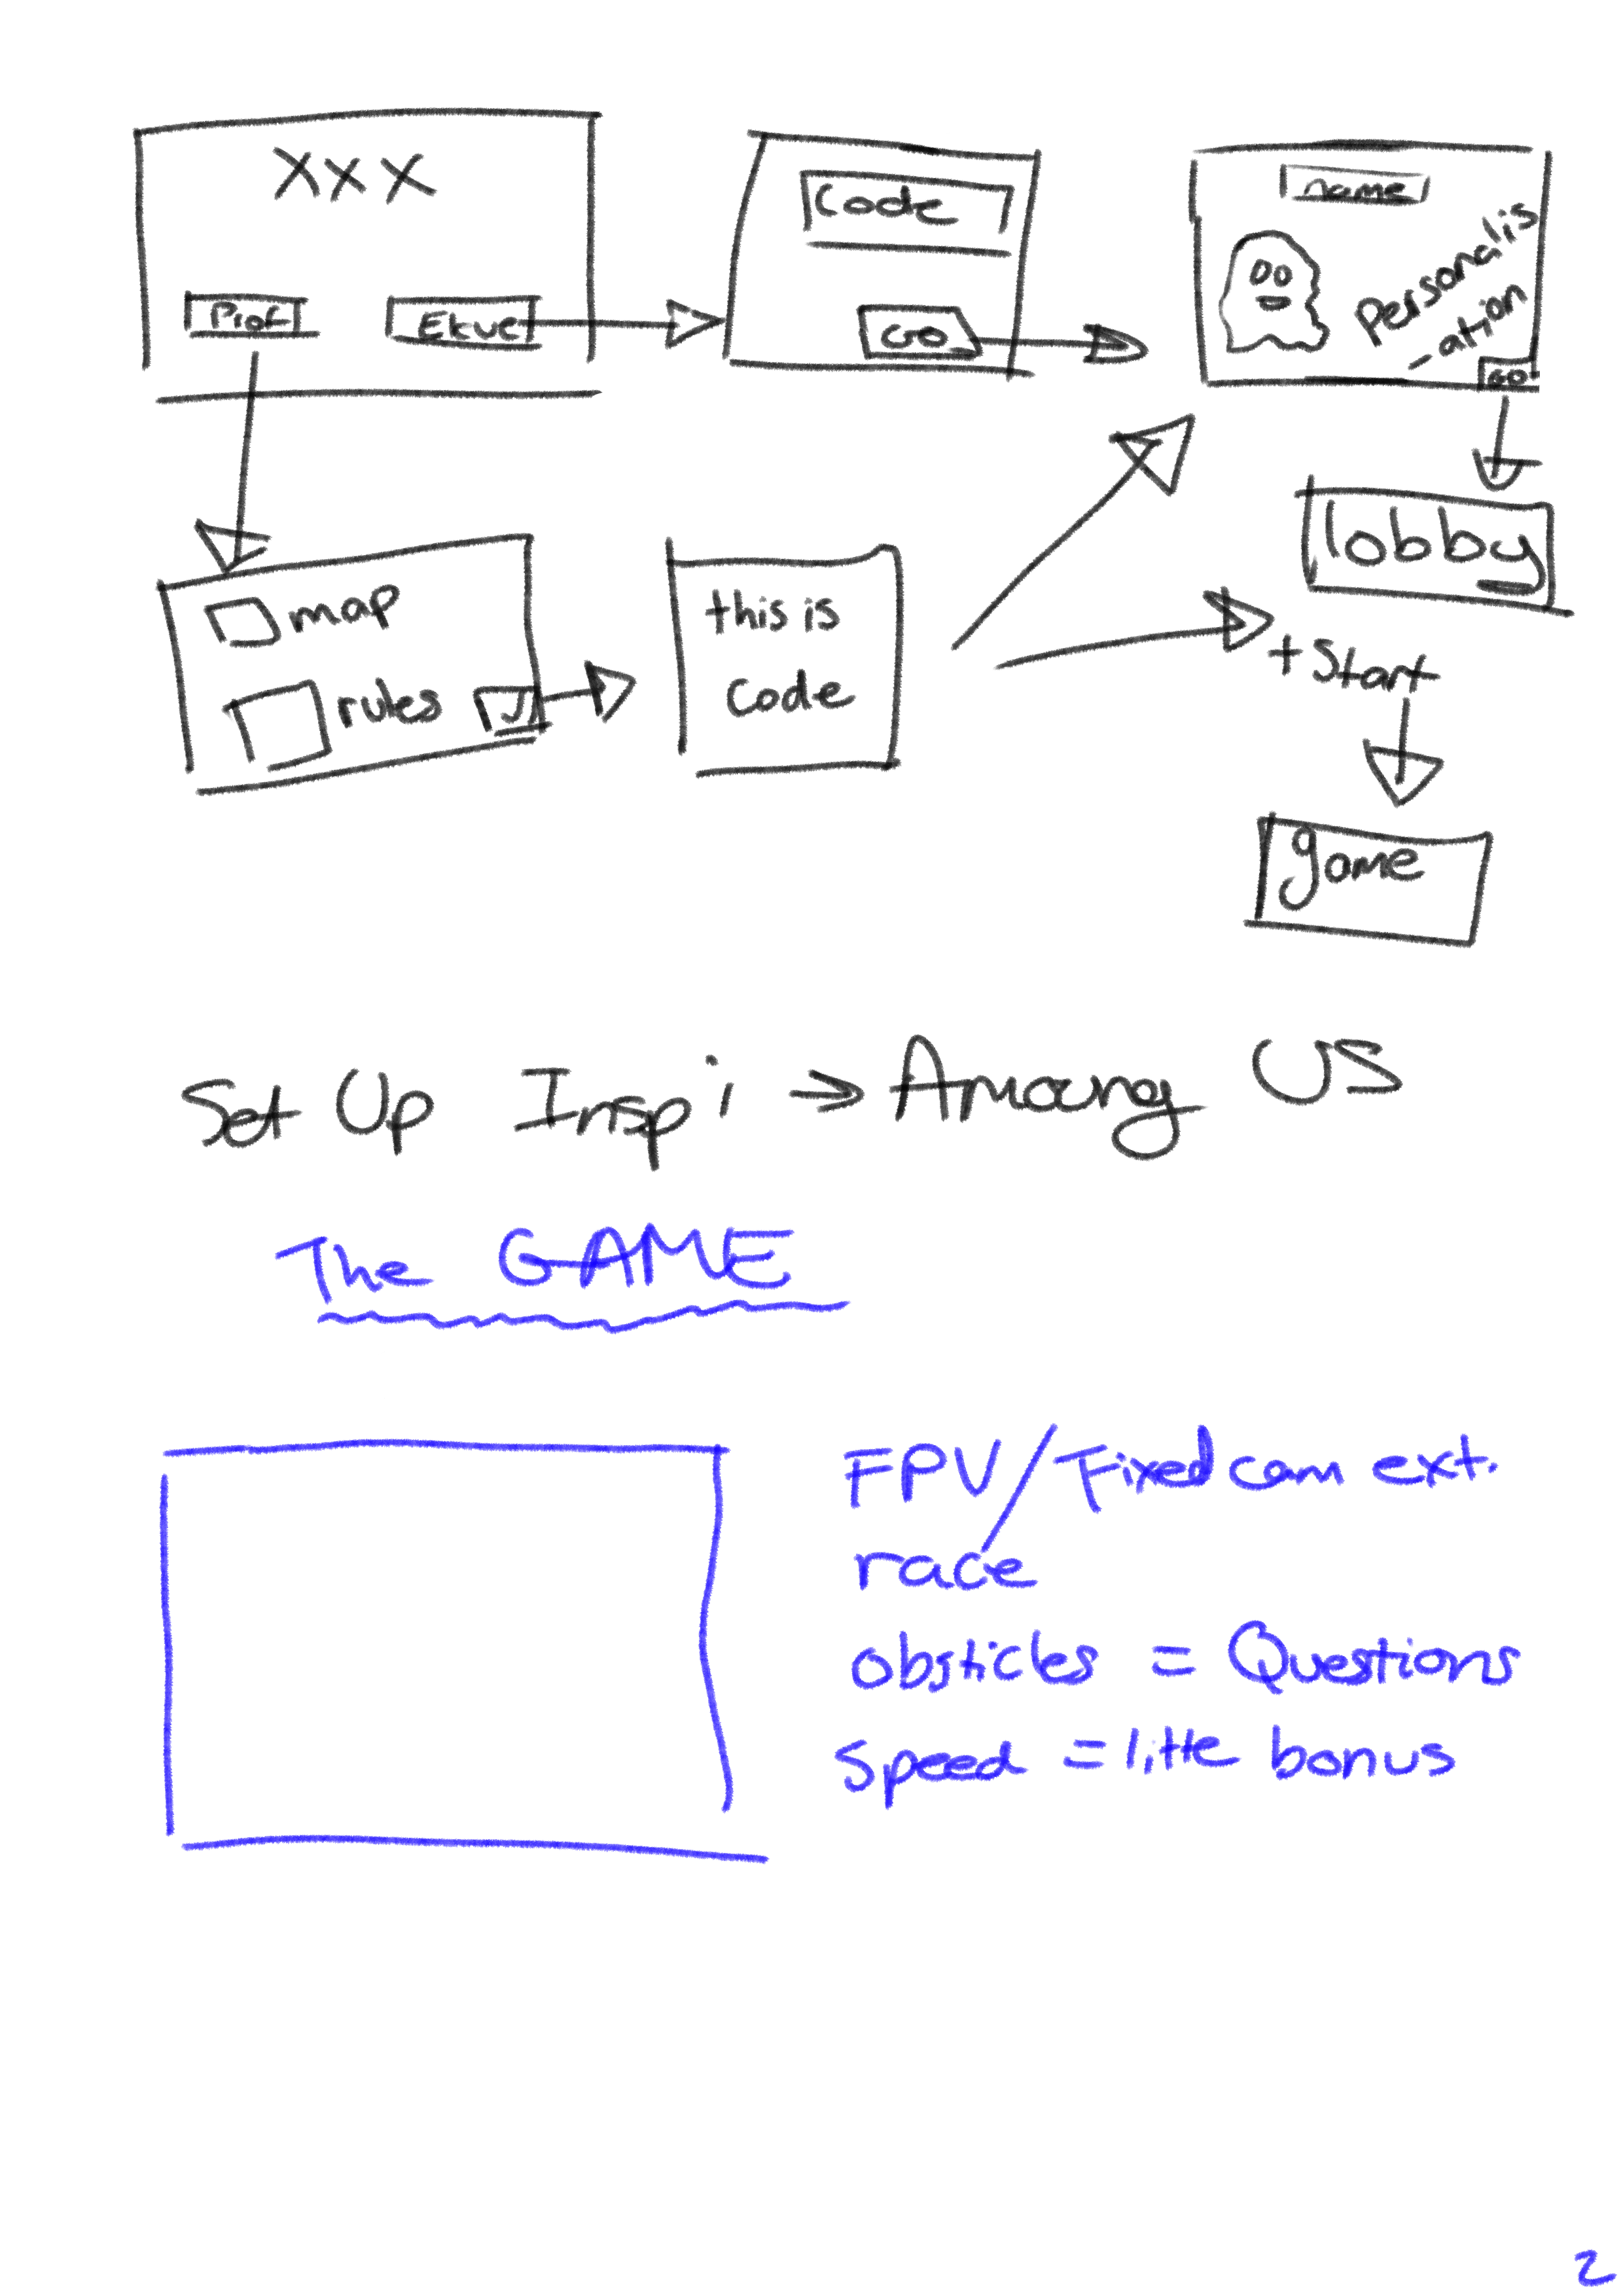 XXX
Prof
Ekve
Code
GO
name
Personalis
-ation
GO
lobby
+Start
game
map
rules
this is
code
Set Up Inspi → Amoung US
The GAME
FPV/Fixed cam ext.
race
obsticles = Questions
speed = litte bonus
2